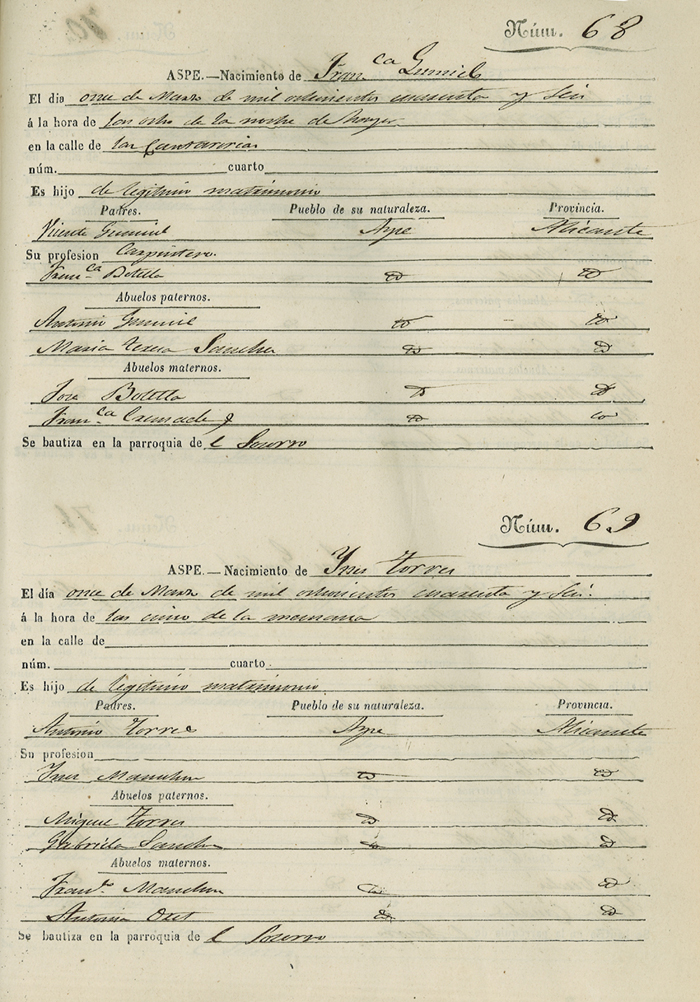 Núm. 68
ASPE.—Nacimiento de Fran ca Gumiel
El dia once de Marzo de mil ochocientos cuarenta y Seis
á la hora de las ocho de la noche de
en la calle de las Cantarerias
núm. cuarto
Es hijo de legitimo matrimonio
Padres. Pueblo de su naturaleza. Provincia.
Vicente Gumiel Aspe Alicante
Su profesion Carpintero.
Fran.ca Botella id id
Abuelos paternos.
Antonio Gumiel id id
Maria Teresa Sanchez id id
Abuelos maternos.
Jose Botella id id
Fran.ca Cremades id id
Se bautiza en la parroquia de l Socorro
Núm. 69
ASPE.—Nacimiento de Ynes Torres
El día once de Marzo de mil ochocientos cuarenta y Seis.
á la hora de las cinco de la mañana
en la calle de
núm. cuarto
Es hijo de legitimo matrimonio
Padres. Pueblo de su naturaleza. Provincia.
Antonio Torres Aspe Alicante
Su profesion
Ynes Manchon id id
Abuelos paternos.
Miguel Torres id id
Gabriela Sanchez id id
Abuelos maternos.
Fran.co Manchon id id
Antonia id id
Se bautiza en la parroquia de l Socorro